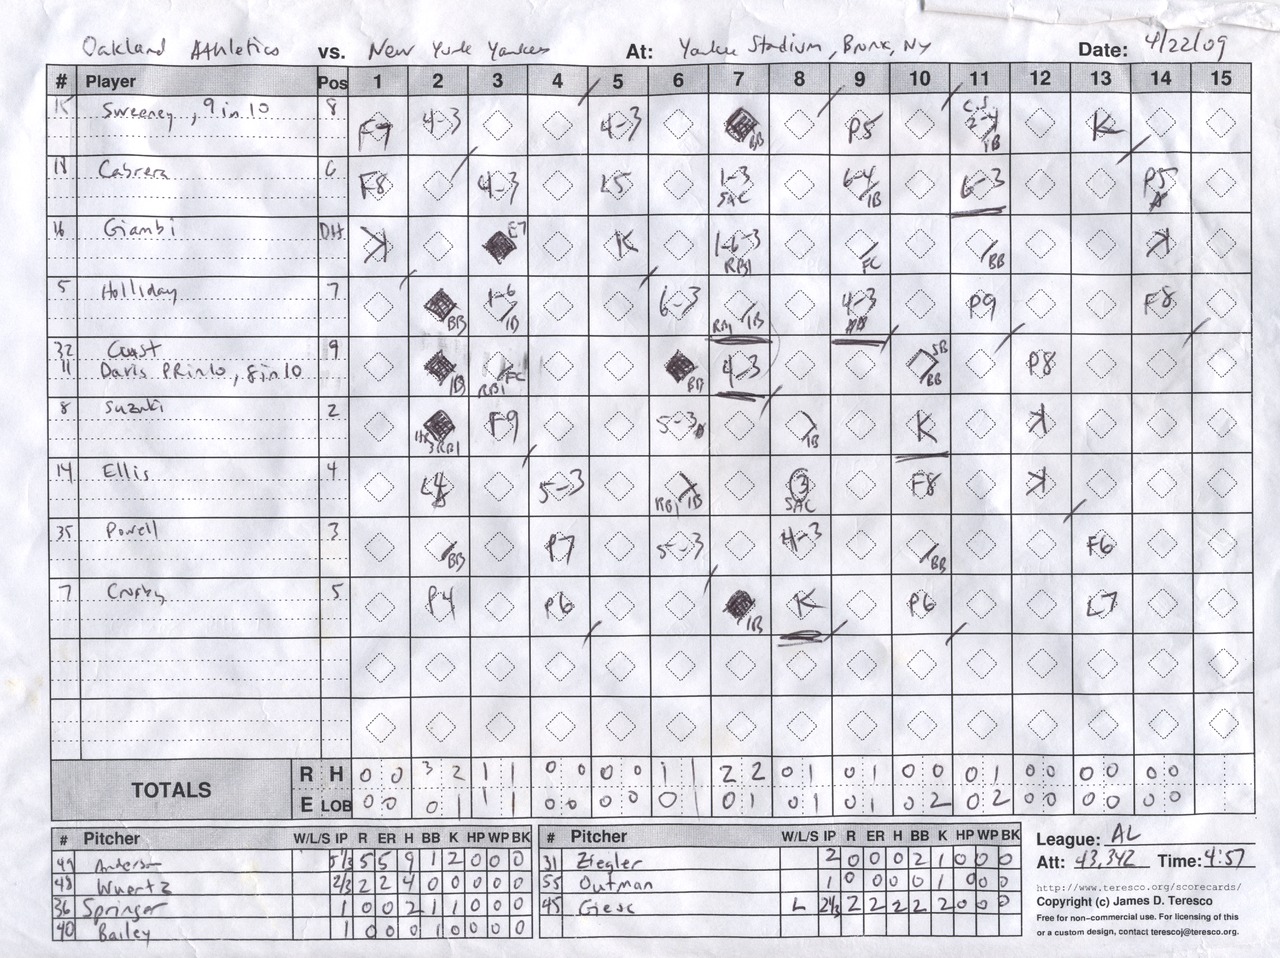 Oakland Athletics vs. New York Yankees At: Yankee Stadium, Bronx, NY Date: 4/22/09
# Player Pos 1 2 3 4 5 6 7 8 9 10 11 12 13 14 15
15 Sweeney, 9 in 10 8 F7 4-3 4-3 BB P5 CS 2-4 1B K
18 Cabrera 6 F8 4-3 L5 1-3 SAC 6-4 1B 6-3 P5
16 Giambi DH K E7 K 1-6-3 RBI FC BB K
5 Holliday 7 BB 1-6 1B 6-3 RBI 1B 4-3 P9 F8
32 Cust 9 1B RBI FC BB 4-3 SB BB P8
11 Davis PR in 10, 8 in 10
8 Suzuki 2 HR 3RBI F9 5-3 1B K K
14 Ellis 4 L4 5-3 RBI 1B 3 SAC F8 K
35 Powell 3 BB P7 5-3 4-3 BB F6
7 Crosby 5 P4 P6 1B K P6 L7
TOTALS
R H 0 0 3 2 1 1 0 0 0 0 1 1 2 2 0 1 0 1 0 0 0 1 0 0 0 0 0 0
E LOB 0 0 0 1 1 1 0 0 0 0 0 1 0 1 0 1 0 1 0 2 0 2 0 0 0 0 0 0
# Pitcher W/L/S IP R ER H BB K HP WP BK
49 Anderson 5 1/3 5 5 9 1 2 0 0 0
48 Wuertz 2/3 2 2 4 0 0 0 0 0
36 Springer 1 0 0 2 1 1 0 0 0
40 Bailey 1 0 0 0 1 0 0 0 0
# Pitcher W/L/S IP R ER H BB K HP WP BK
31 Ziegler 2 0 0 0 2 1 0 0 0
55 Outman 1 0 0 0 0 1 0 0 0
45 Giese L 2 1/3 2 2 2 2 2 0 0 0
League: AL
Att: 43,342 Time: 4:57
http://www.teresco.org/scorecards/
Copyright (c) James D. Teresco
Free for non-commercial use. For licensing of this
or a custom design, contact terescoj@teresco.org.